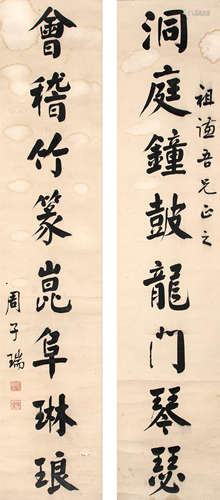 洞庭鐘鼓龍門琴瑟
祖謐吾兄正之
會稽竹篆崑阜琳琅
周子瑞